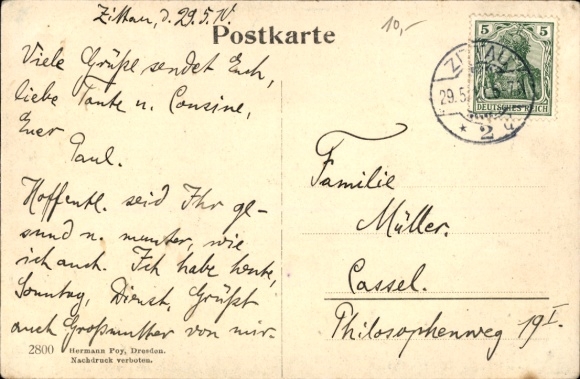 Zittau, d. 29.5.10.
10,-
Postkarte
5 5
DEUTSCHES REICH
ZITTAU
29.5.
* 2
Viele Grüße sendet Euch,
liebe Tante u. Cousine,
Euer
Paul.
Hoffentl. seid Ihr ge-
sund u. munter, wie
ich auch. Ich habe heute,
Sonntag, Dienst. Grüßt
auch Großmutter von mir.
Familie
Müller.
Cassel.
Philosophenweg 19 I.
2800 Hermann Poy, Dresden.
Nachdruck verboten.